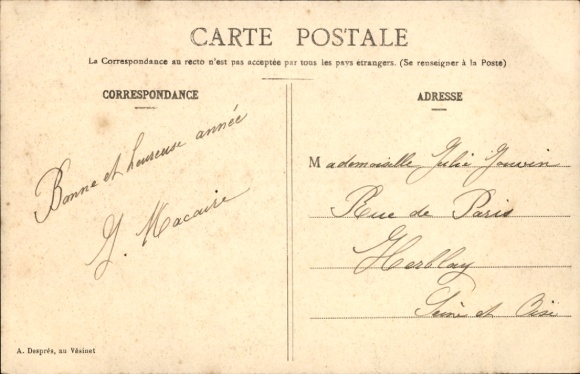 CARTE POSTALE
La Correspondance au recto n'est pas acceptée par tous les pays étrangers. (Se renseigner à la Poste)
CORRESPONDANCE
Bonne et heureuse année
J. Macaire
ADRESSE
Mademoiselle Julie Jouvin
Rue de Paris
Herblay
Seine et Oise
A. Després, au Vésinet